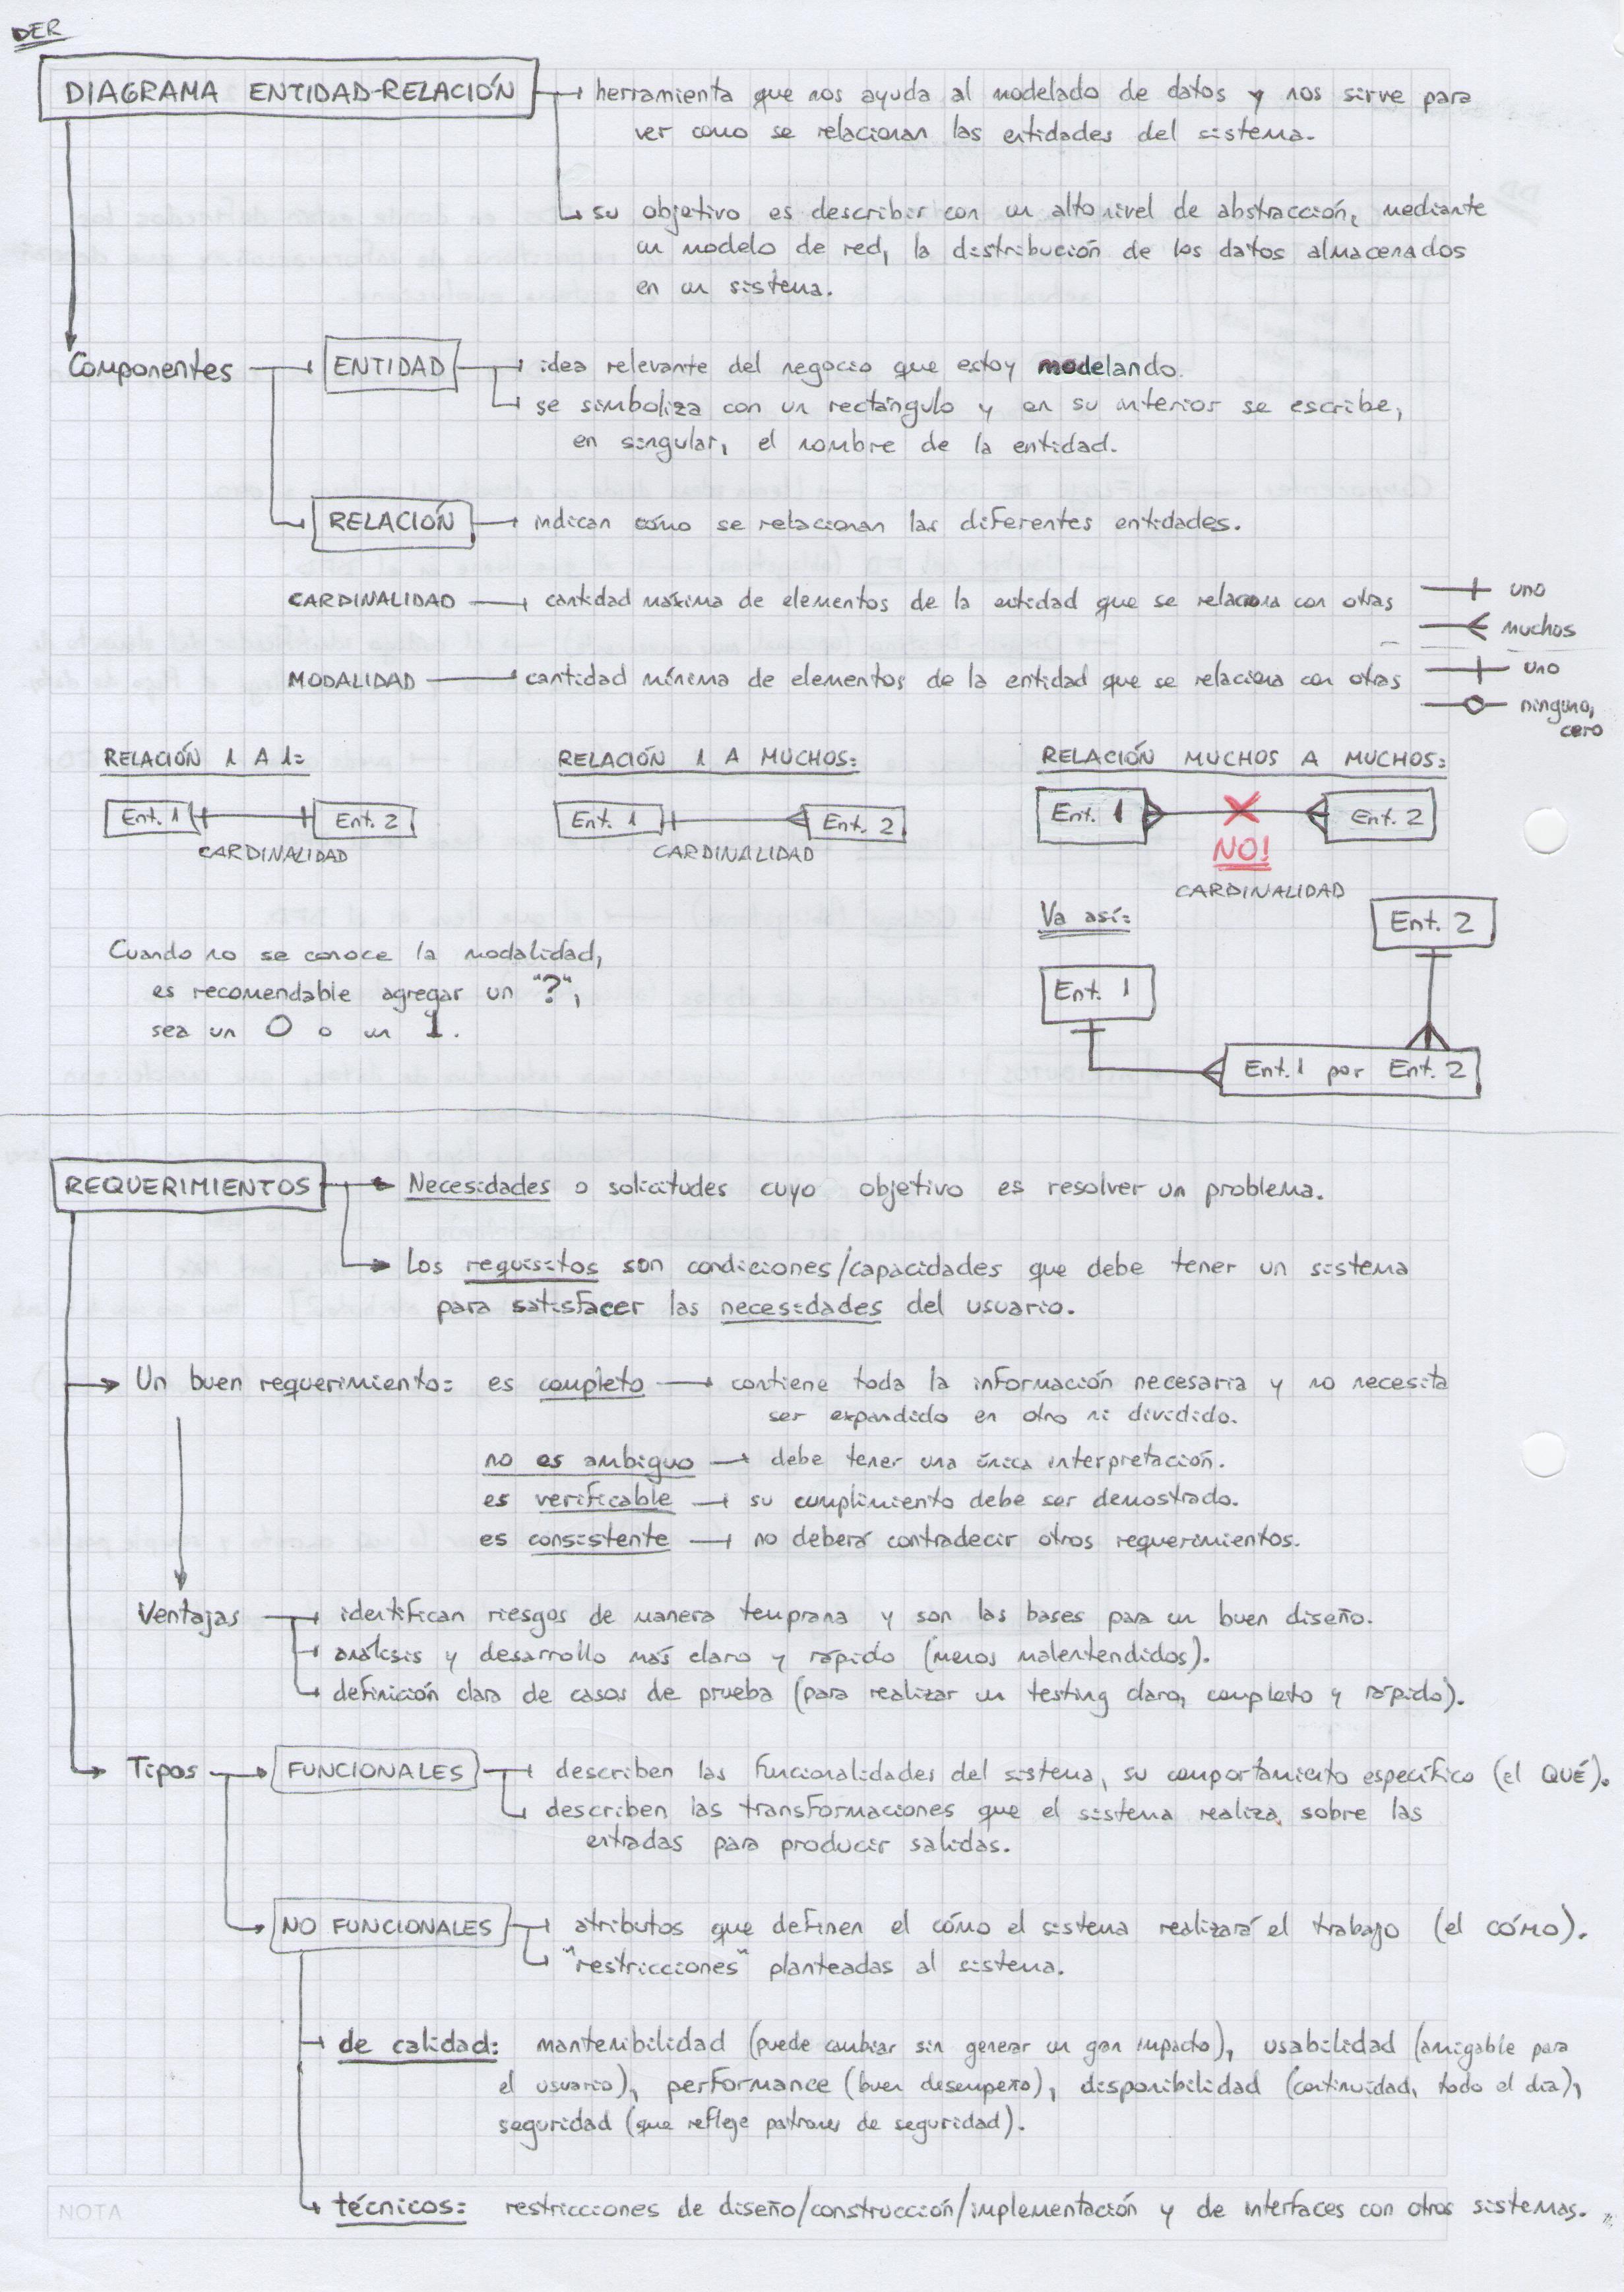 DER
DIAGRAMA ENTIDAD-RELACIÓN
herramienta que nos ayuda al modelado de datos y nos sirve para
ver como se relacionan las entidades del sistema.
su objetivo es describir con un alto nivel de abstracción, mediante
un modelo de red, la distribución de los datos almacenados
en un sistema.
Componentes
ENTIDAD
idea relevante del negocio que estoy modelando.
se simboliza con un rectángulo y en su interior se escribe,
en singular, el nombre de la entidad.
RELACIÓN
indican cómo se relacionan las diferentes entidades.
CARDINALIDAD cantidad máxima de elementos de la entidad que se relaciona con otras
uno
muchos
MODALIDAD cantidad mínima de elementos de la entidad que se relaciona con otras
uno
ninguno,
cero
RELACIÓN 1 A 1:
Ent. 1 Ent. 2
CARDINALIDAD
RELACIÓN 1 A MUCHOS:
Ent. 1 Ent. 2
CARDINALIDAD
RELACIÓN MUCHOS A MUCHOS:
Ent. 1 Ent. 2
NO!
CARDINALIDAD
Va así:
Ent. 2
Ent. 1
Ent. 1 por Ent. 2
Cuando no se conoce la modalidad,
es recomendable agregar un "?",
sea un 0 o un 1.
REQUERIMIENTOS
Necesidades o solicitudes cuyo objetivo es resolver un problema.
Los requisitos son condiciones/capacidades que debe tener un sistema
para satisfacer las necesidades del usuario.
Un buen requerimiento: es completo contiene toda la información necesaria y no necesita
ser expandido en otro ni dividido.
no es ambiguo debe tener una única interpretación.
es verificable su cumplimiento debe ser demostrado.
es consistente no deberá contradecir otros requerimientos.
Ventajas identifican riesgos de manera temprana y son las bases para un buen diseño.
análisis y desarrollo más claro y rápido (menos malentendidos).
definición clara de casos de prueba (para realizar un testing claro, completo y rápido).
Tipos
FUNCIONALES describen las funcionalidades del sistema, su comportamiento específico (el QUÉ).
describen las transformaciones que el sistema realiza sobre las
entradas para producir salidas.
NO FUNCIONALES atributos que definen el cómo el sistema realizará el trabajo (el CÓMO).
"restricciones" planteadas al sistema.
de calidad: mantenibilidad (puede cambiar sin generar un gran impacto), usabilidad (amigable para
el usuario), performance (buen desempeño), disponibilidad (continuidad, todo el día),
seguridad (que refleje patrones de seguridad).
técnicos: restricciones de diseño/construcción/implementación y de interfaces con otros sistemas.
NOTA